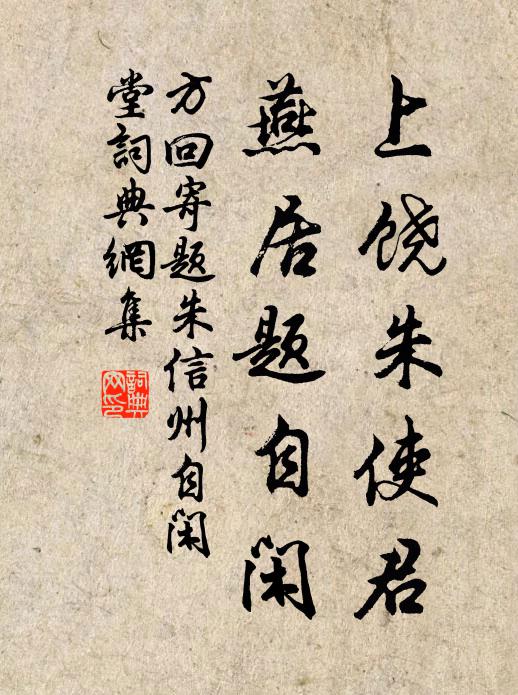 上饶朱使君
燕居题自闲
方回寄题朱信州自闲
堂詞典網集
詞典网印